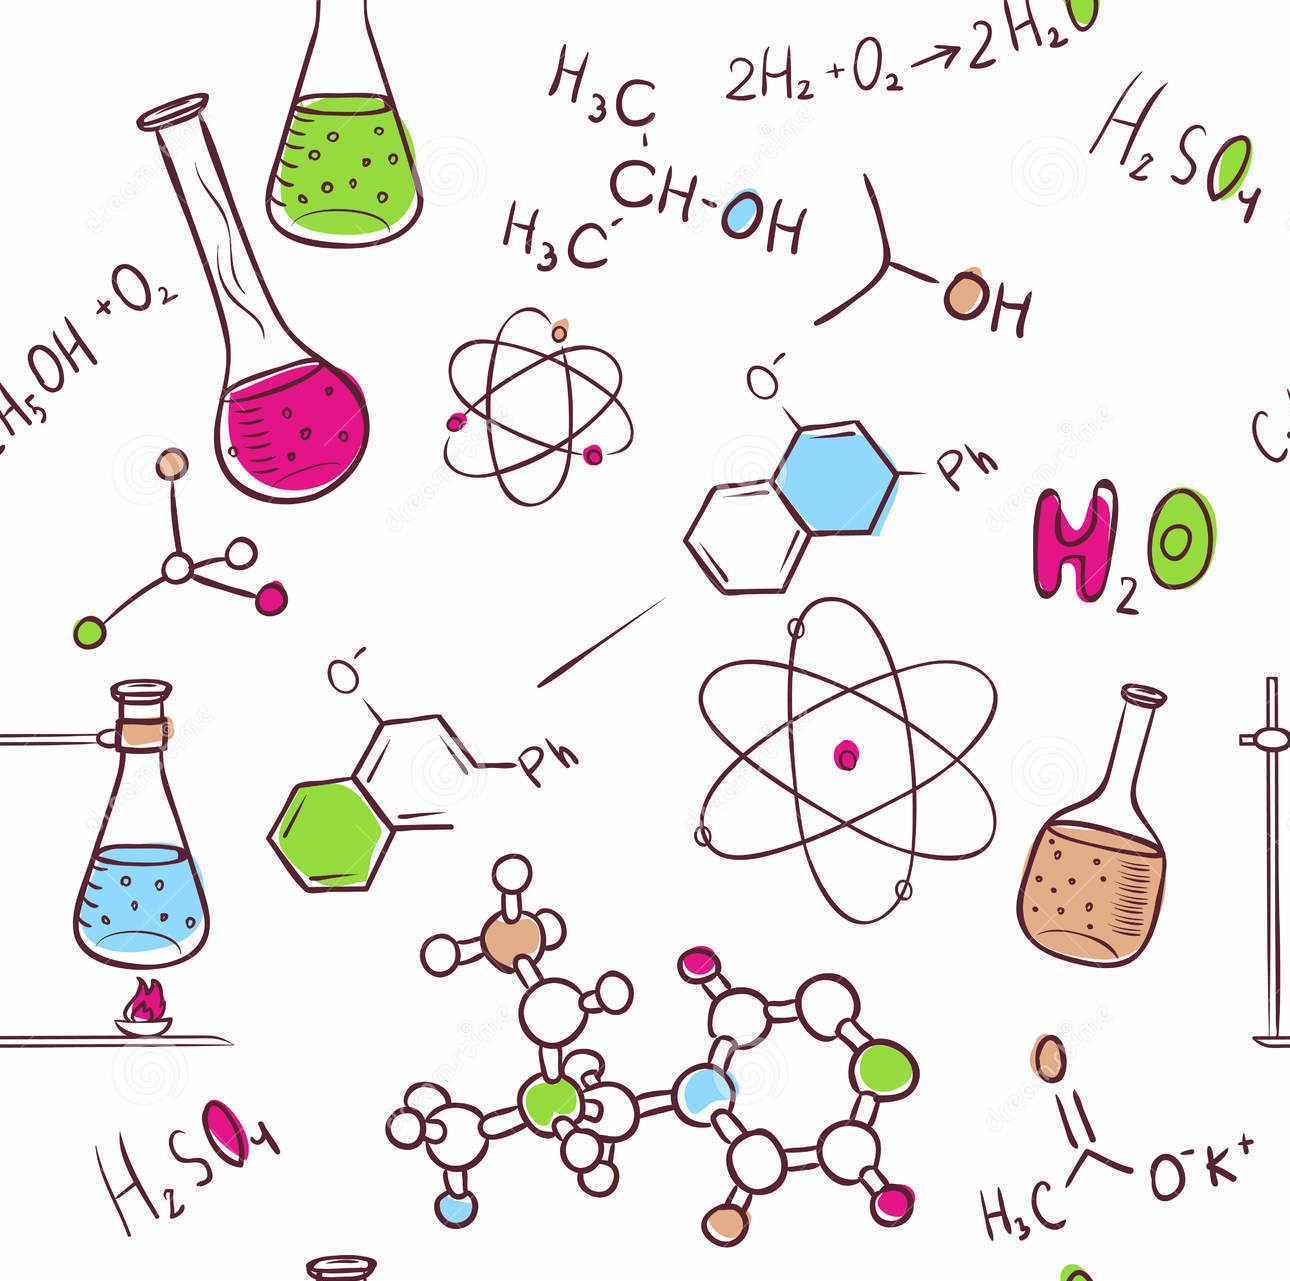 2H₂+O₂→2H₂O
H₃C
CH-OH
H₃C
H₂SO₄
OH
H₅OH+O₂
O⁻
Ph
C
H₂O
O⁻
Ph
H₂SO₄
O
H₃C
O⁻K⁺
dreamstime